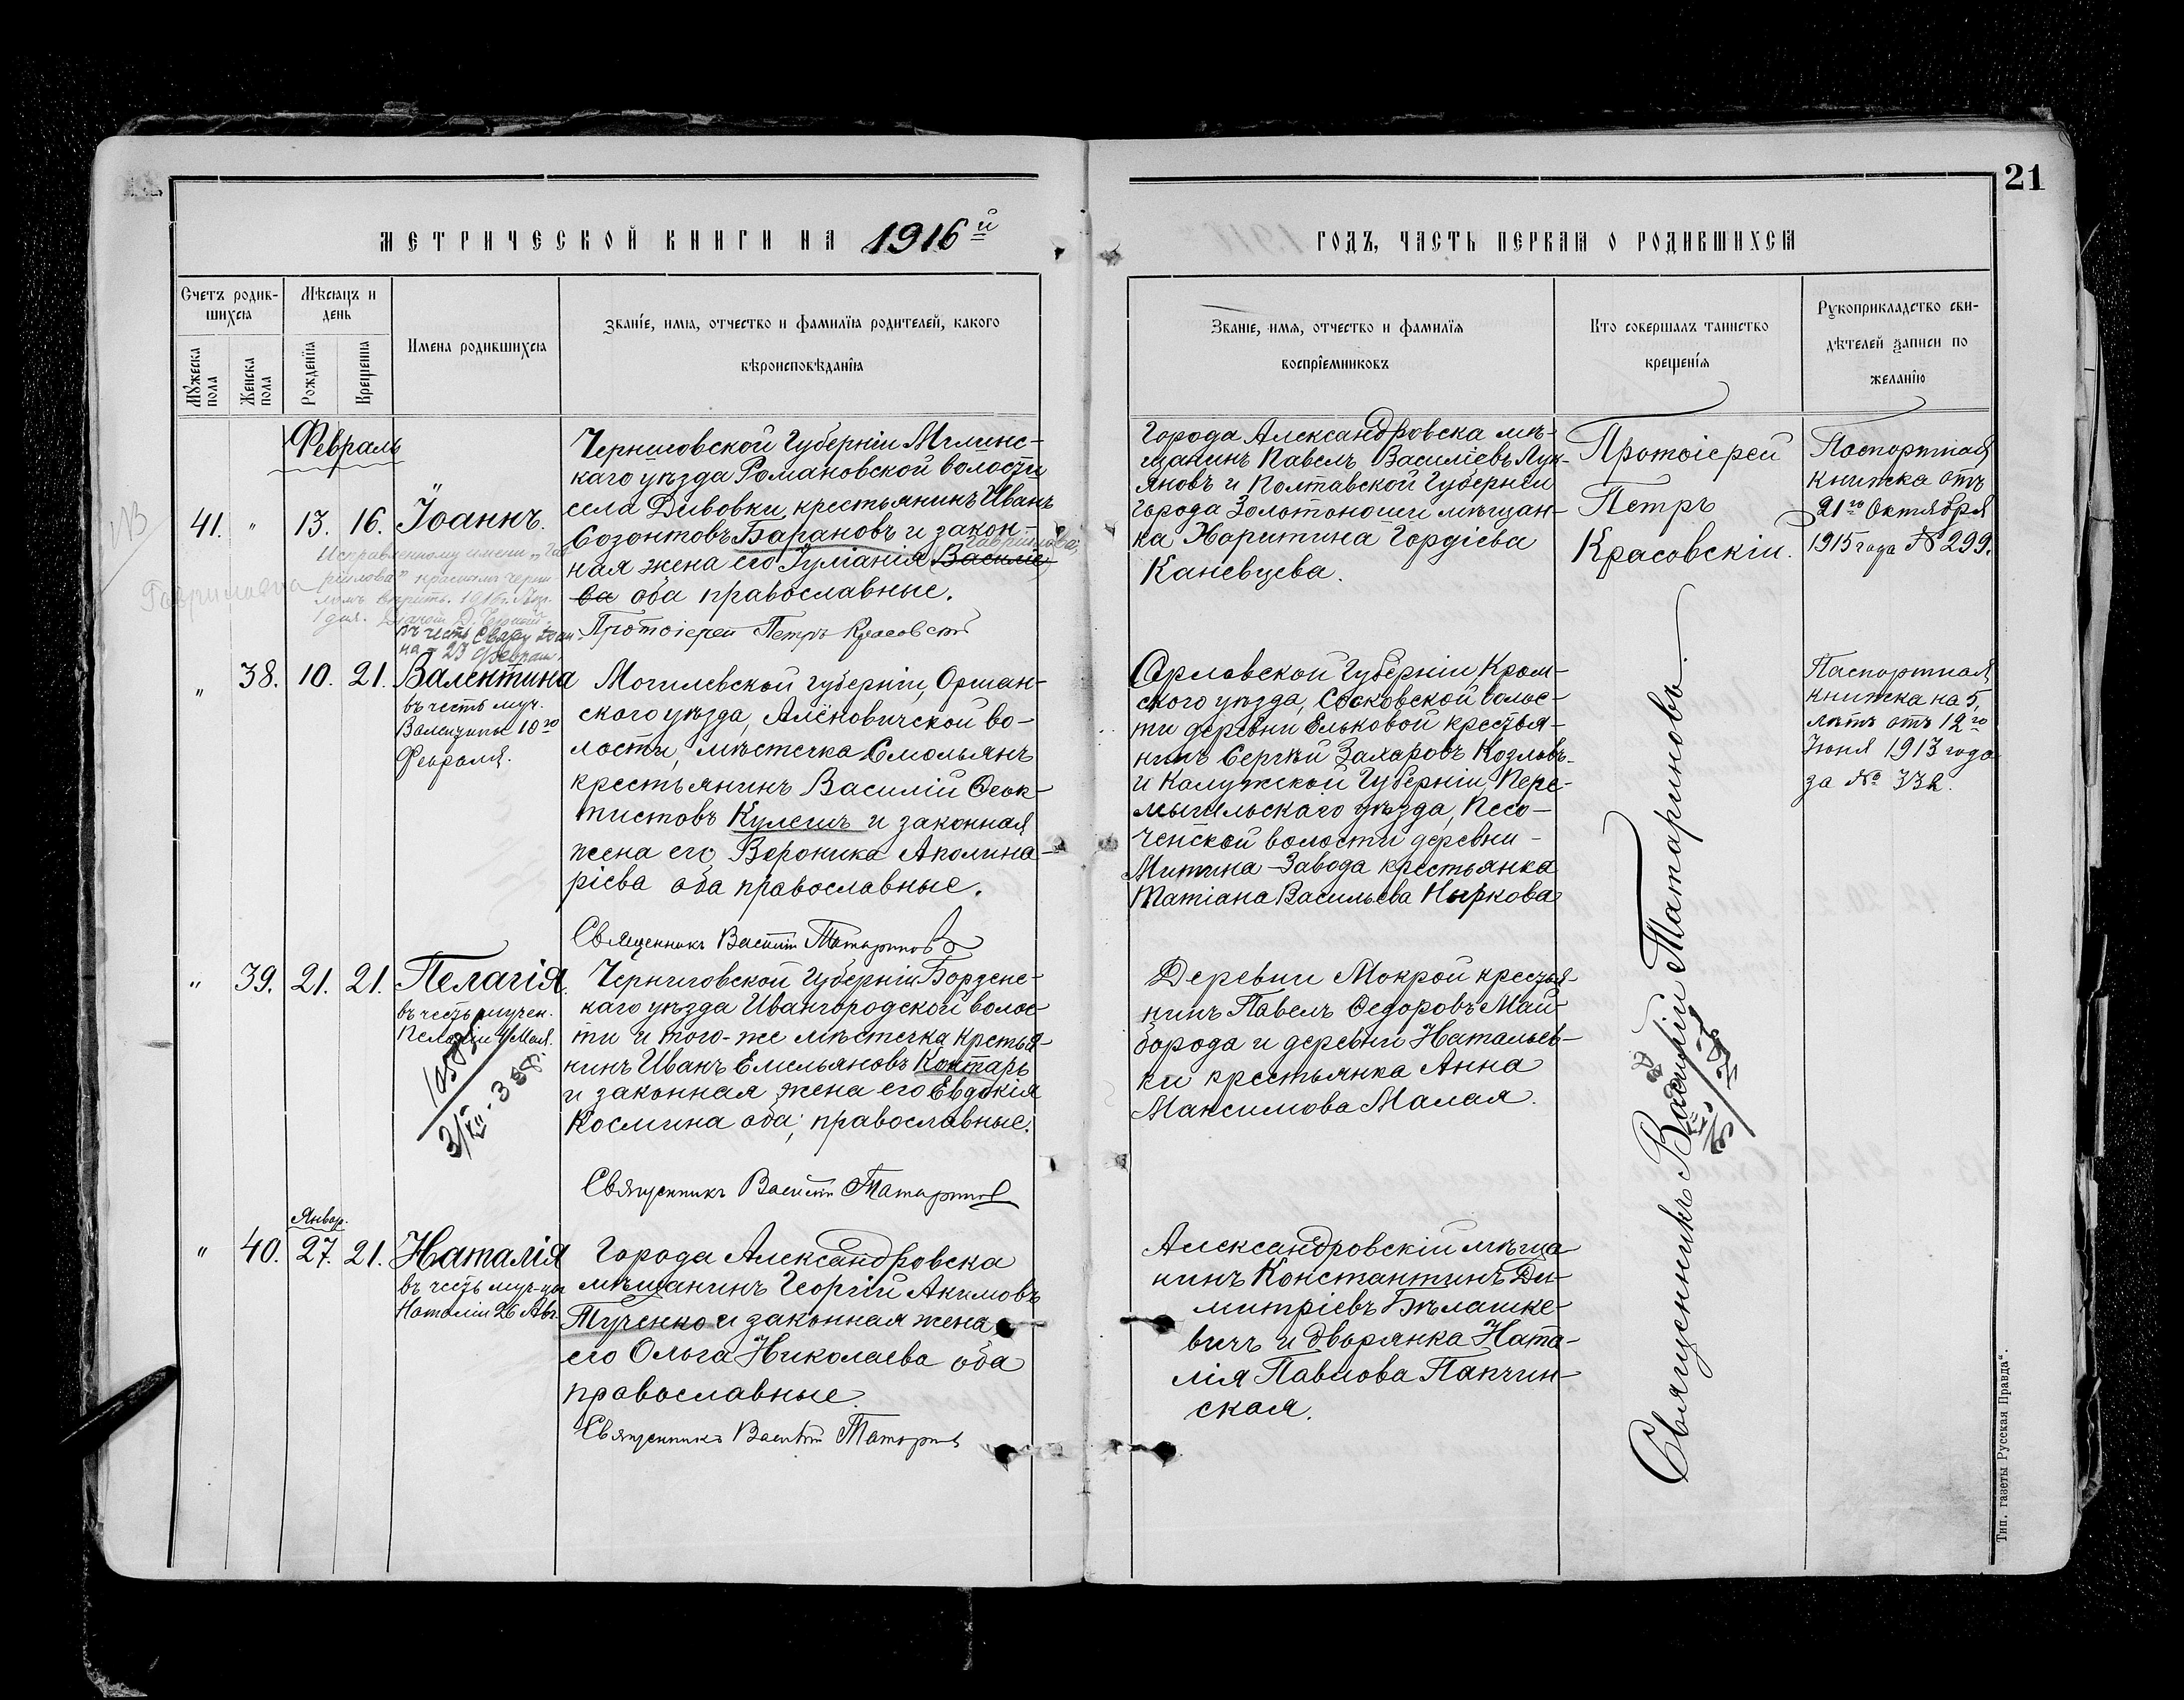 21
МЕТРИЧЕСКОЙ КНИГИ НА 1916й
ГОДЪ, ЧАСТЬ ПЕРВАЯ О РОДИВШИХСЯ
Счетъ родив-
шихся
Мужеска
пола
Женска
пола
Мѣсяцъ и
день
Рожденїя
Крещенїя
Имена родившихся
Званїе, имя, отчество и фамилїя родителей, какого
вѣроисповѣданїя
Званїе, имя, отчество и фамилїя
воспрїемниковъ
Кто совершалъ таинство
крещенїя
Рукоприкладство сви-
дѣтелей записи по
желанїю
Февраль
41. " 13. 16. Іоаннъ.
въ честь
на - 23 Февраля.
Черниговской Губерніи Мглинс-
каго уѣзда Романовской волости
села Дивовки, крестьянинъ Иванъ
Созонтовъ Барановъ и закон-
Гавриилова,
ная жена его Іуліанія Василіе-
ва оба православные.
Протоіерей Петръ Красовскій
Исправленному имени „Гав
риилова"
Гавриловна
Города Александровска мѣ-
щанинъ Павелъ Василіевъ Лук-
яновъ и Полтавской Губерніи
города Золотоноши мѣщан-
ка Харитина Гордіева
Каневцева.
Протоіерей
Петръ
Красовскій.
Паспортная
книжка отъ
21го Октября
1915 года № 299.
" 38. 10. 21. Валентина
въ честь муч.
Валентины 10го
Февраля.
Могилевской губерніи, Оршан-
ского уѣзда, Алёновичской во-
лости, мѣстечка Смольянъ
крестьянинъ Василій Ѳеок-
тистовъ Кулешъ и законная
жена его Вероника Аполина-
ріева оба православные.
Священникъ Василій Татариновъ
Орловской Губерніи, Кром-
ского уѣзда, Сосковской волос-
ти деревни Ельковой крестья-
нинъ Сергѣй Захаровъ Козловъ-
и Калужской Губерніи, Пере-
мышльскаго уѣзда, Песо-
ченской волости деревни -
Митина-Завода крестьянка
Татіана Васильева Ныркова
Паспортная
книжка на 5,
лѣтъ отъ 12го
Іюня 1913 года
за № 332.
Священникъ Василій Татариновъ.
" 39. 21. 21. Пелагія.
въ честь мучен.
Пелагіи 4 Мая.
Черниговской Губерніи Борзенс-
каго уѣзда Ивангородской волос-
ти и того-же мѣстечка крестья-
нинъ Иванъ Емельяновъ Контарь
и законная жена его Евдокія
Космина оба, православные.
Священникъ Василій Татариновъ
Деревни Мокрой крестья-
нинъ Павелъ Ѳедоровъ Май-
борода и деревни Натальев-
ки крестьянка Анна
Максимова Малая.
Январ.
" 40. 27. 21. Наталія
въ честь муч-цы
Наталіи 26 Авг.
Города Александровска
мѣщанинъ Георгій Акимовъ
Тученко и законная жена
его Ольга Николаева оба
православные.
Священникъ Василій Татариновъ
Александровскій мѣща
нинъ Константинъ Ди-
митріевъ Бѣлашке-
вичъ и дворянка Ната-
лія Павлова Папчин-
ская.
Тип. газеты Русская Правда".